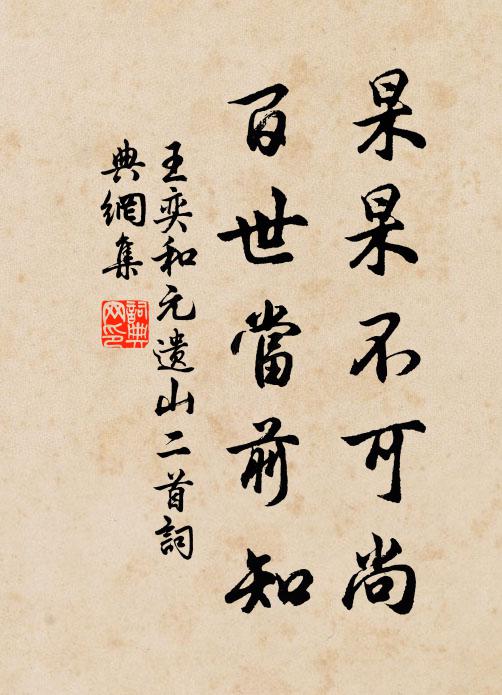 杲杲不可尚
百世當前知
王奕和元遺山二首詞
典網集
詞典
網印